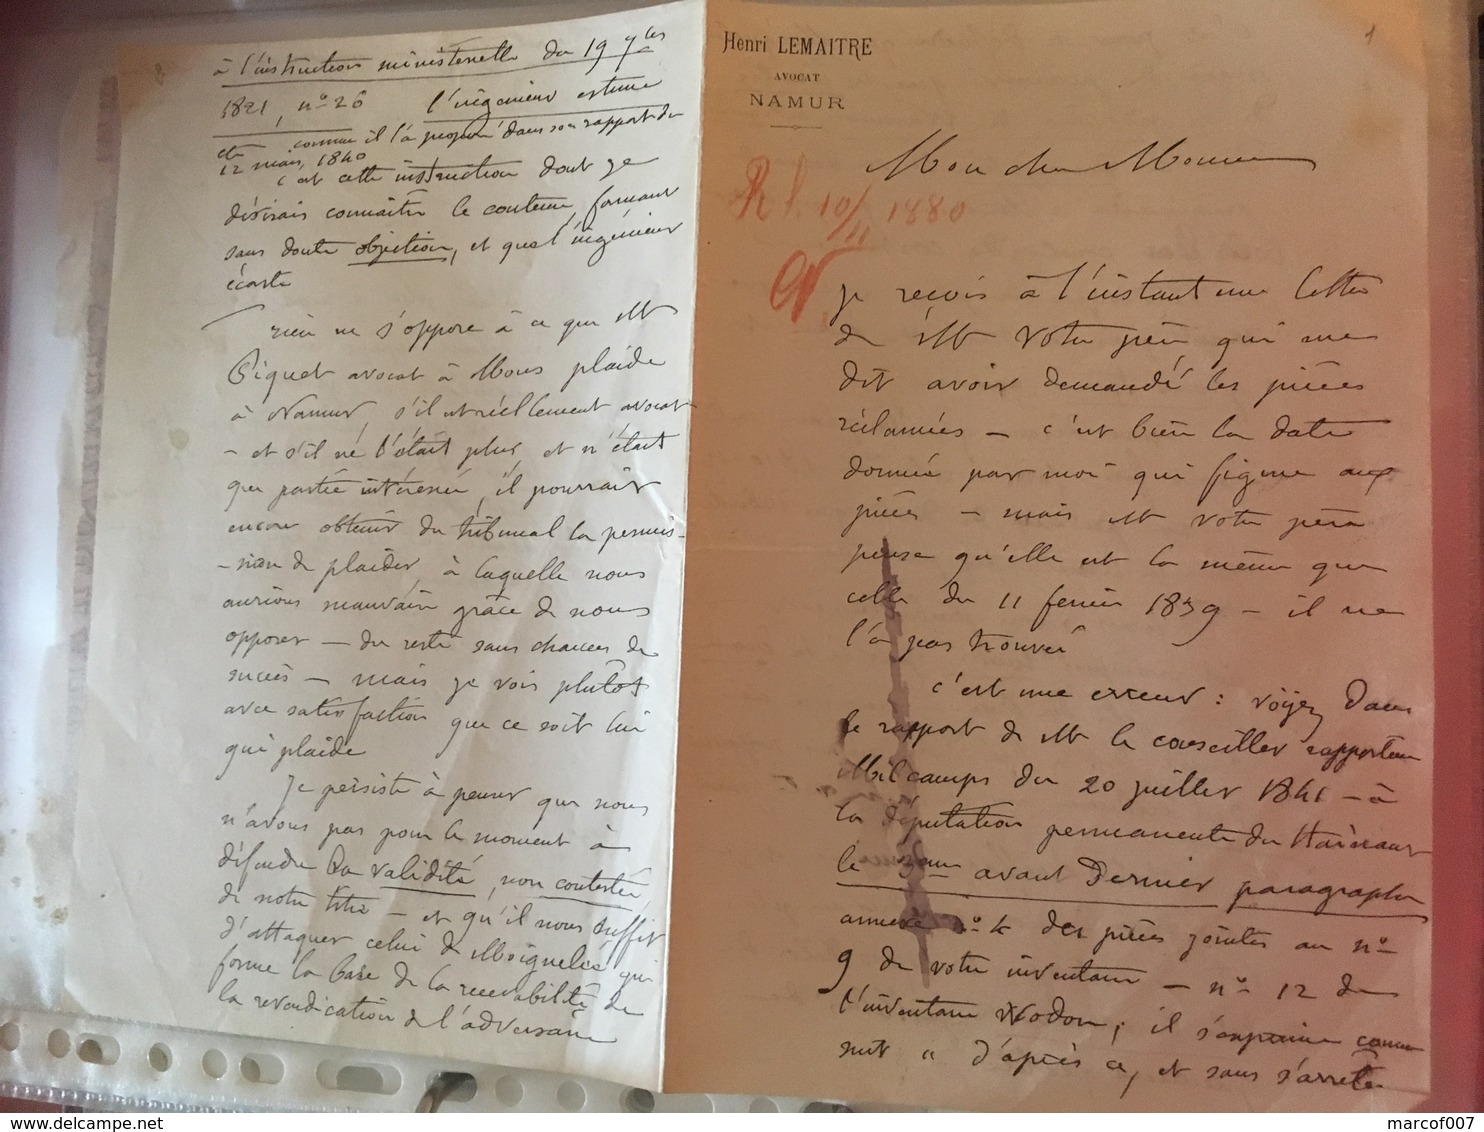 1
Henri LEMAITRE
AVOCAT
NAMUR
Mon cher Monsieur
R l. 10/11 1880
je reçois à l'instant une lettre
de M votre père qui me
dit avoir demandé les pièces
réclamées – c'est bien la date
donnée par moi qui figure aux
pièces – mais M votre père
pense qu'elle est la même que
celle du 11 fevrier 1839 – il ne
l'a pas trouvée
c'est une erreur : voyez dans
le rapport de M le conseiller rapporteur
Milcamps du 20 juillet 1841 – à
la députation permanente du Hainaut
le 3eme avant dernier paragraphe
annexe n° 4 des pièces jointes au n°
9 de votre inventaire – n° 12 de
l'inventaire Wodon ; il s'exprime comme
suit « d'après ce, et sans s'arrêter
à l'instruction ministerielle du 19 9bre
1821, n° 26 l'ingénieur estime
etc comme il l'a proposé dans son rapport du
12 mars, 1840
c'est cette instruction dont je
désirais connaître le contenu, formant
sans doute objection, et que l'ingénieur
écarte
rien ne s'oppose à ce que M
Piquet avocat à Mons plaide
à Namur, s'il est réellement avocat
– et s'il ne l'était plus, et n'était
que partie intéressée, il pourrait
encore obtenir du tribunal la permis-
-sion de plaider, à laquelle nous
aurions mauvaise grâce de nous
opposer – du reste sans chances de
succès – mais je vois plutôt
avec satisfaction que ce soit lui
qui plaide
Je persiste à penser que nous
n'avons pas pour le moment à
défendre la validité, non contestée,
de notre titre – et qu'il nous suffit
d'attaquer celui de Moignelée, qui
forme la base de la recevabilité de
la revendication de l'adversaire
marcof007